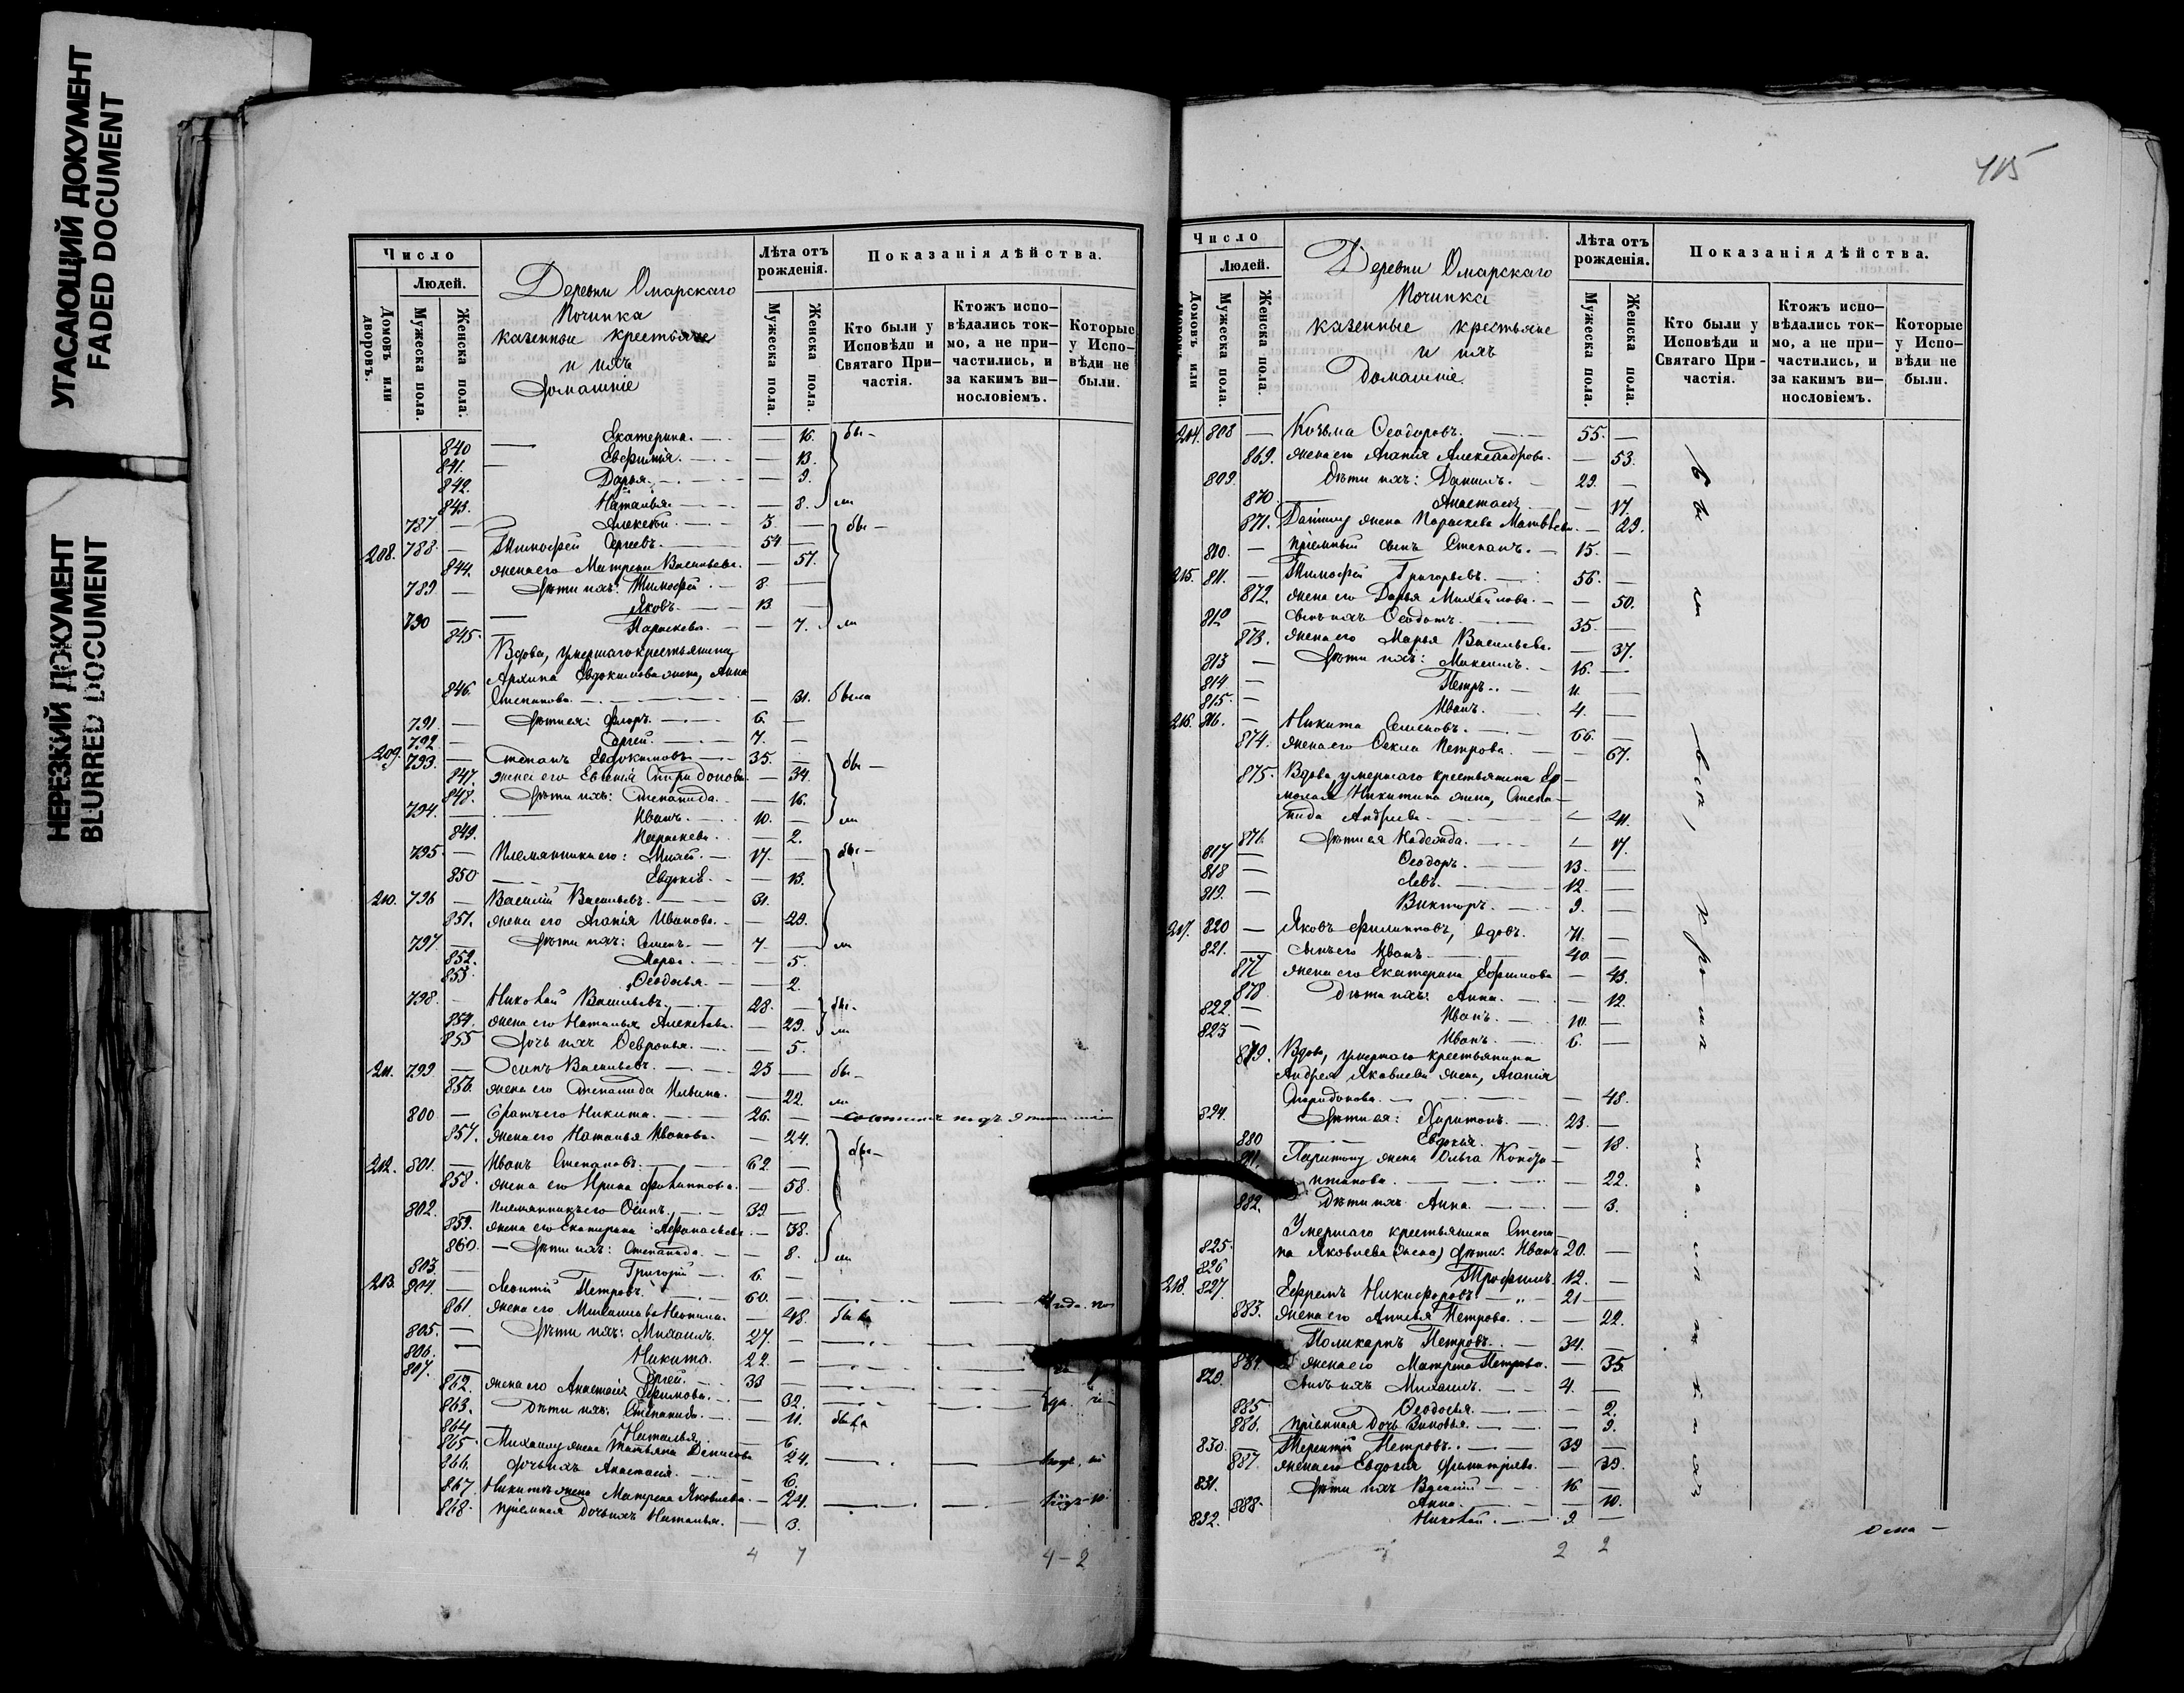 УГАСАЮЩИЙ ДОКУМЕНТ
FADED DOCUMENT
НЕРЕЗКИЙ ДОКУМЕНТ
BLURRED DOCUMENT
Число
Людей.
Домовъ или дворовъ.
Мужеска пола.
Женска пола.
Деревни Омарскаго
Починка
казенные крестьяне
и ихъ
домашніе
Лѣта отъ рожденія.
Мужеска пола.
Женска пола.
Показанія дѣйства.
Кто были у Исповѣди и Святаго Причастія.
Ктожъ исповѣдались токмо, а не причастились, и за какимъ винословіемъ.
Которые у Исповѣди не были.
840 — Екатерина. — 16. бы-
841. — Евфимія. — 13.
842. Дарья. — 9.
843. Наталья. — 8. ли
787 — Алексѣй. 3. — бы-
208. 788. — Тимофей Сергеевъ. 54 —
844. жена его Матрена Васильева. — 57.
789 — Дѣти ихъ: Тимофей. 8. —
Яковъ. 13 —
790 — 845. Параскева. — 7. ли
Вдова, умершаго крестьянина
Архипа Евдокимова жена, Анна
846. Степанова. — 31. была
791. — Дѣти ея: Флоръ. 6. —
792. — Сергей. 7. —
209. 793. — Степанъ Евдокимовъ 35. — бы-
847. жена его Евгенія Спиридонова. — 34.
848. Дѣти ихъ: Степанида. — 16.
794. — Иванъ. 10. — ли
849. Параскева. — 2.
795. — Племянники его: 17. — бы-
850 Евдокія. — 13.
210. 796 — Василій Васильевъ. 31.
851. жена его Агапія Иванова. — 29.
797. — Дѣти ихъ: Семенъ. 7. — ли
852. — 5.
853. Ѳеодосья. — 2.
798. — Николай Васильевъ. 28. — бы-
854. жена его Наталья Алексѣева. — 29. ли
855 Дочь ихъ Февронья. — 5.
211. 799 — Осипъ Васильевъ. 25 — бы-
856. жена его Степанида Ильина. — 22. ли
800 — братъ его Никита. 26. —
857. жена его Наталья Иванова. — 24. бы-
212. 801. — Иванъ Степановъ. 62. —
858. жена его Ирина Филиппова. — 58.
802. — племянникъ его Осипъ. 39. —
859. жена его Екатерина Афанасьева. — 38.
860. — Дѣти ихъ: Степанида. — 8. ли
803. — Григорій 6. —
213. 804. — Леонтій Петровъ. 60. —
861 жена его — 48. была
805. — Дѣти ихъ: Михаилъ. 27. —
806. — Никита. 22. —
807. — Сергей. 33 —
862. жена его Анастасія Ефимова. — 32.
863. Дѣти ихъ: Степанида. — 11. была
864 Наталья. — 6.
865 Михаилу жена Татьяна Денисова 24.
866. дочь ихъ Анастасія. — 6.
867. Никитѣ жена Матрена Яковлева. — 24.
868. пріемная дочь ихъ Наталья. — 3.
4 7 4-2
415
Число
Людей.
Домовъ или дворовъ.
Мужеска пола.
Женска пола.
Деревни Омарскаго
Починка
казенные крестьяне
и ихъ
Домашніе.
Лѣта отъ рожденія.
Мужеска пола.
Женска пола.
Показанія дѣйства.
Кто были у Исповѣди и Святаго Причастія.
Ктожъ исповѣдались токмо, а не причастились, и за какимъ винословіемъ.
Которые у Исповѣди не были.
214. 808 — Козьма Ѳеодоровъ. 55. —
869. жена его Агапія Александрова. — 53.
809. Дѣти ихъ: Даниилъ. 29. —
870 Анастасія. — 17.
871. Даніилу жена Параскева Матвѣева. — 29.
810. — пріемный сынъ Степанъ. 15. —
215. 811. — Тимофей Григорьевъ. 56. —
872. жена его Дарья Михайлова. — 50.
812 — сынъ ихъ Ѳеодотъ. 35. —
873. жена его Марья Васильева. — 37.
813 — Дѣти ихъ: Максимъ. 16. —
814 — Петръ. 11. —
815 — Иванъ. 4. —
216. 816. — Никита Семеновъ. 66. —
874. жена его Ѳекла Петрова. — 67.
875. Вдова, умершаго крестьянина Ер-
молая Никитина жена, Степа-
нида Андреева — 41.
876. Дѣти ея Надежда. — 17.
817 — Ѳеодоръ. 13. —
818 — Левъ. 12. —
819. — Викторъ. 9. —
217. 820 — Яковъ Филипповъ, вдовъ. 71. —
821. — сынъ его Иванъ. 40. —
877 жена его Екатерина Ефимова — 43.
878 Дѣти ихъ: Анна. — 12.
822. — Иванъ. 10. —
823 — Иванъ. 6. —
879. Вдова, умершаго крестьянина
Андрея Яковлева жена, Агапія
Спиридонова. — 48.
824. Дѣти ея: Харитонъ. 23. —
880 Евдокія. — 18.
881. Харитону жена Ольга Конд-
— 22.
882. Дѣти ихъ Анна. — 3.
Умершаго крестьянина Степа-
825. на Яковлева (жена) дѣти: Иванъ 20. —
826 Трофимъ. 12. —
218. 827. Ефремъ Никифоровъ 21 —
883. жена его Петрова. — 22.
Поликарпъ Петровъ. 34. —
884. жена его Матрена Петрова. — 35.
829. сынъ ихъ Михаилъ. 4. —
885 Ѳеодосья. — 2.
886. пріемная дочь Зиновья. — 9.
830. — Терентій Петровъ. 39 —
887. жена его Евдокія Димитріева. — 39.
831. Дѣти ихъ Василій 16. —
888. Анна. — 10.
832. Николай. 9. —
2 2